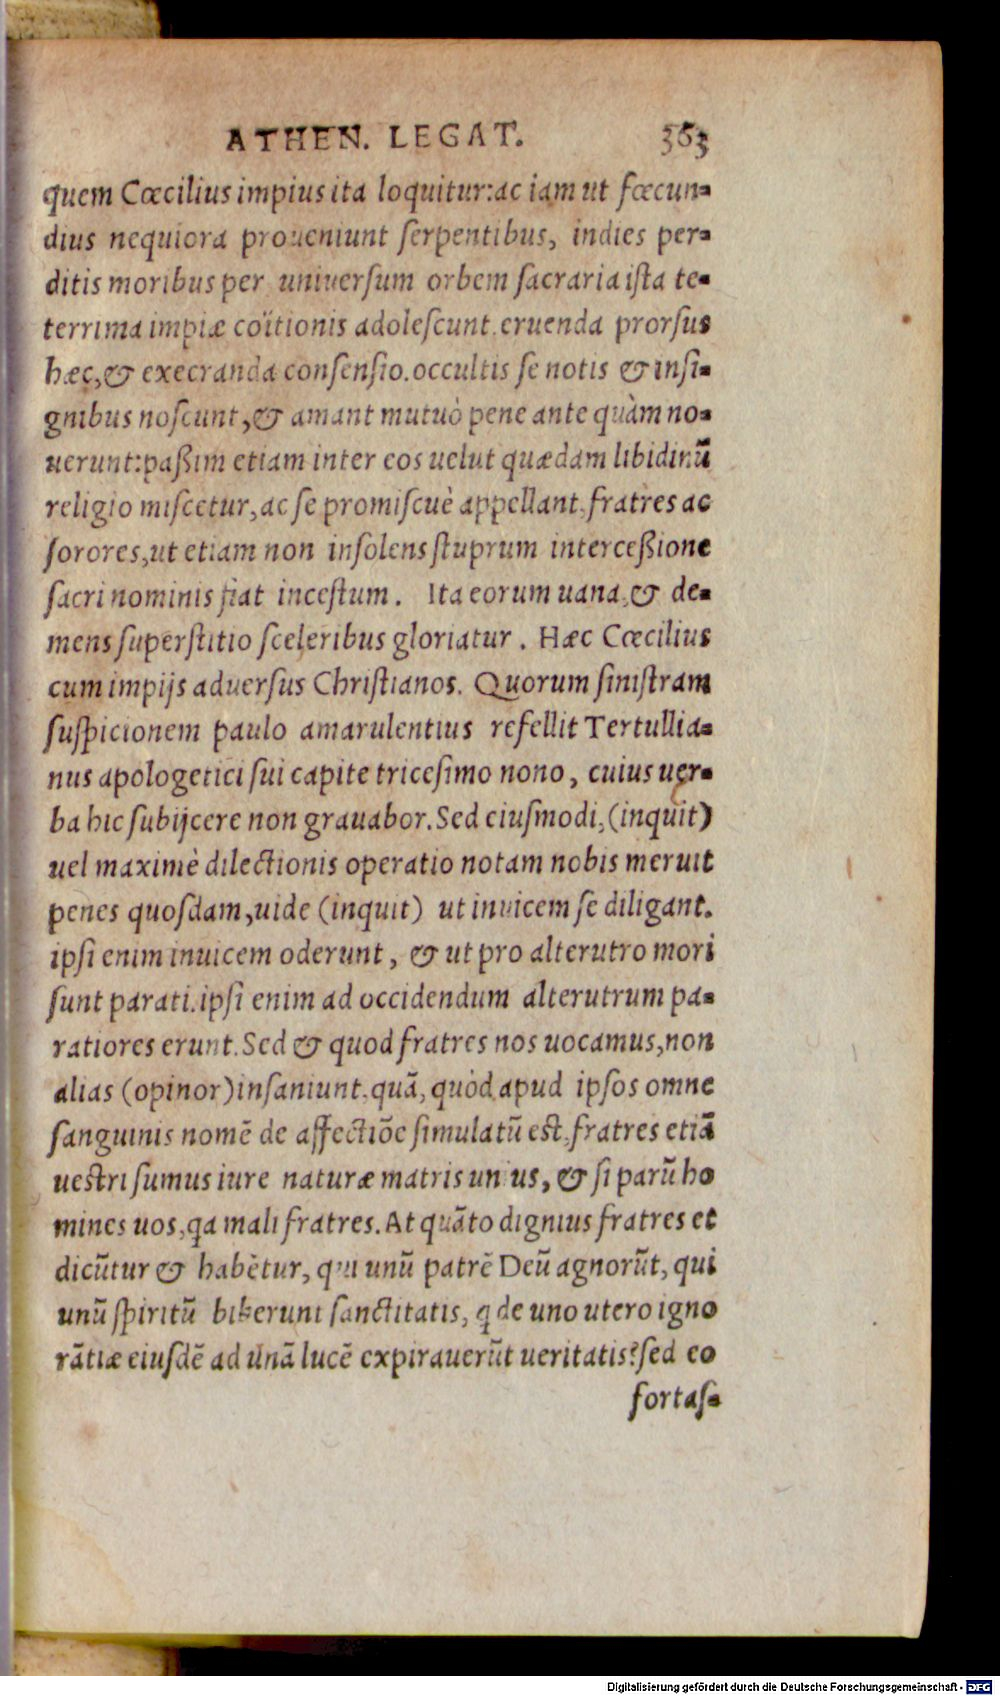 ATHEN. LEGAT. 363
quem Cœcilius impius ita loquitur: ac iam ut fœcun-
dius nequiora proueniunt serpentibus, indies per-
ditis moribus per uniuersum orbem sacraria ista te-
terrima impiæ coïtionis adolescunt. eruenda prorsus
hæc, & execranda consensio. occultis se notis & insi-
gnibus noscunt, & amant mutuò pene ante quàm no-
uerunt: paßim etiam inter eos uelut quædam libidinũ
religio miscetur, ac se promiscuè appellant, fratres ac
sorores, ut etiam non insolens stuprum interceßione
sacri nominis fiat incestum. Ita eorum uana, & de-
mens superstitio sceleribus gloriatur. Hæc Cœcilius
cum impijs aduersus Christianos. Quorum sinistram
suspicionem paulo amarulentius refellit Tertullia-
nus apologetici sui capite tricesimo nono, cuius uer-
ba hic subijcere non grauabor. Sed eiusmodi, (inquit)
uel maximè dilectionis operatio notam nobis meruit
penes quosdam, uide (inquit) ut inuicem se diligant.
ipsi enim inuicem oderunt, & ut pro alterutro mori
sunt parati. ipsi enim ad occidendum alterutrum pa-
ratiores erunt. Sed & quod fratres nos uocamus, non
alias (opinor) insaniunt, quã, quòd apud ipsos omne
sanguinis nomẽ de affectiõe simulatũ est, fratres etiã
uestri sumus iure naturæ matris unius, & si parũ ho
mines uos, qa mali fratres. At quãto dignius fratres et
dicũtur & habẽtur, qui unũ patrẽ Deũ agnorũt, qui
unũ spiritũ biberunt sanctitatis, q de uno utero igno
rãtiæ eiusdẽ ad unã lucẽ expirauerũt ueritatis? sed eo
fortas-
Digitalisierung gefördert durch die Deutsche Forschungsgemeinschaft - DFG